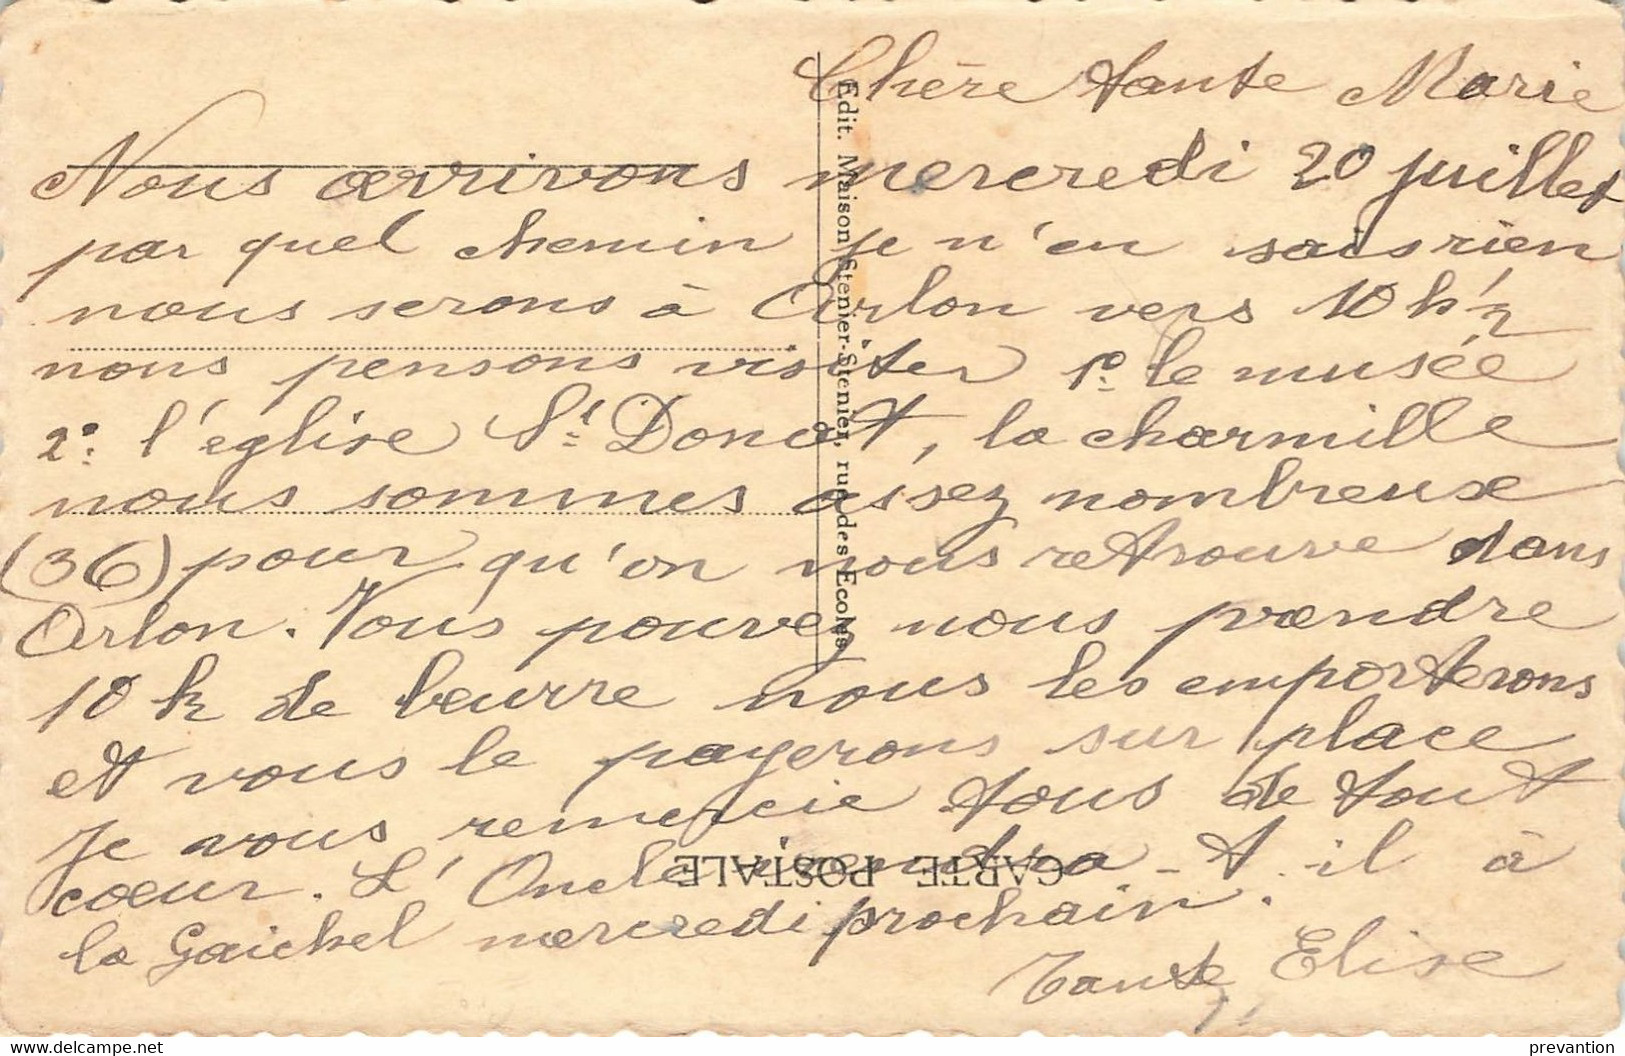 Chère tante Marie
Nous arrivons mercredi 20 juillet
par quel chemin je n'en sais rien
nous serons à Arlon vers 10 h ½
nous pensons visiter 1º le musée
2º l'église St Donat, la charmille
nous sommes assez nombreux
(36) pour qu'on nous retrouve dans
Arlon. Vous pouvez nous prendre
10 k de beurre nous les emporterons
et vous le payerons sur place
Je vous remercie tous de tout
cœur. L'Oncle viendra-t-il à
la Gaichel mercredi prochain.
Tante Elise
Edit. Maison Stenier-Stenier, rue des Ecoles
CARTE POSTALE
Delcampe.net
prevantion